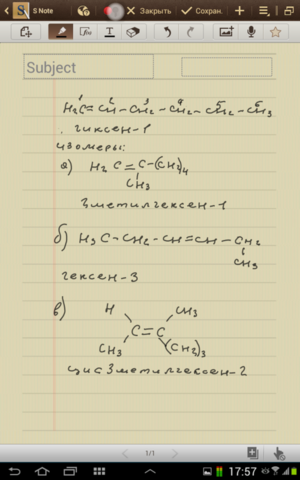 S Note
Закрыть
Сохран.
Subject
H₂C=CH-CH₂-CH₂-CH₂-CH₃
1 2 3 4 5 6
гиксен-1
изомеры:
а) H₂ C=C-(CH₂)₄
CH₃
3метилгексен-1
б) H₃C-CH₂-CH=CH-CH₂
CH₃
гексен-3
в) H CH₃
C=C
CH₃ (CH₂)₃
цис3метилгексен-2
1/1
17:57